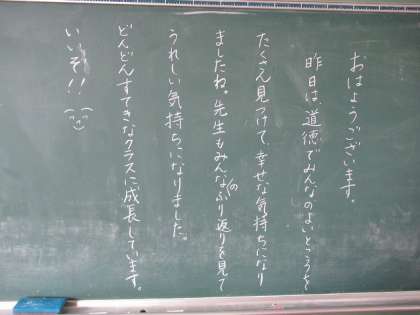 おはようございます。
昨日は、道徳でみんなのよいところを
たくさん見つけて、幸せな気持ちになり
ましたね。先生もみんなのふり返りを見て
うれしい気持ちになりました。
どんどんすてきなクラスに成長しています。
いいぞ!!